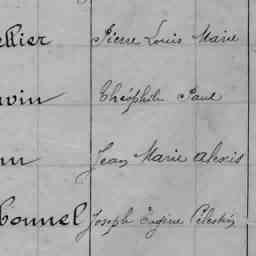 ellier Pierre Louis Marie
win Théophile Paul
nn Jean Marie Alexis
bonnel Joseph Eugène Célestin